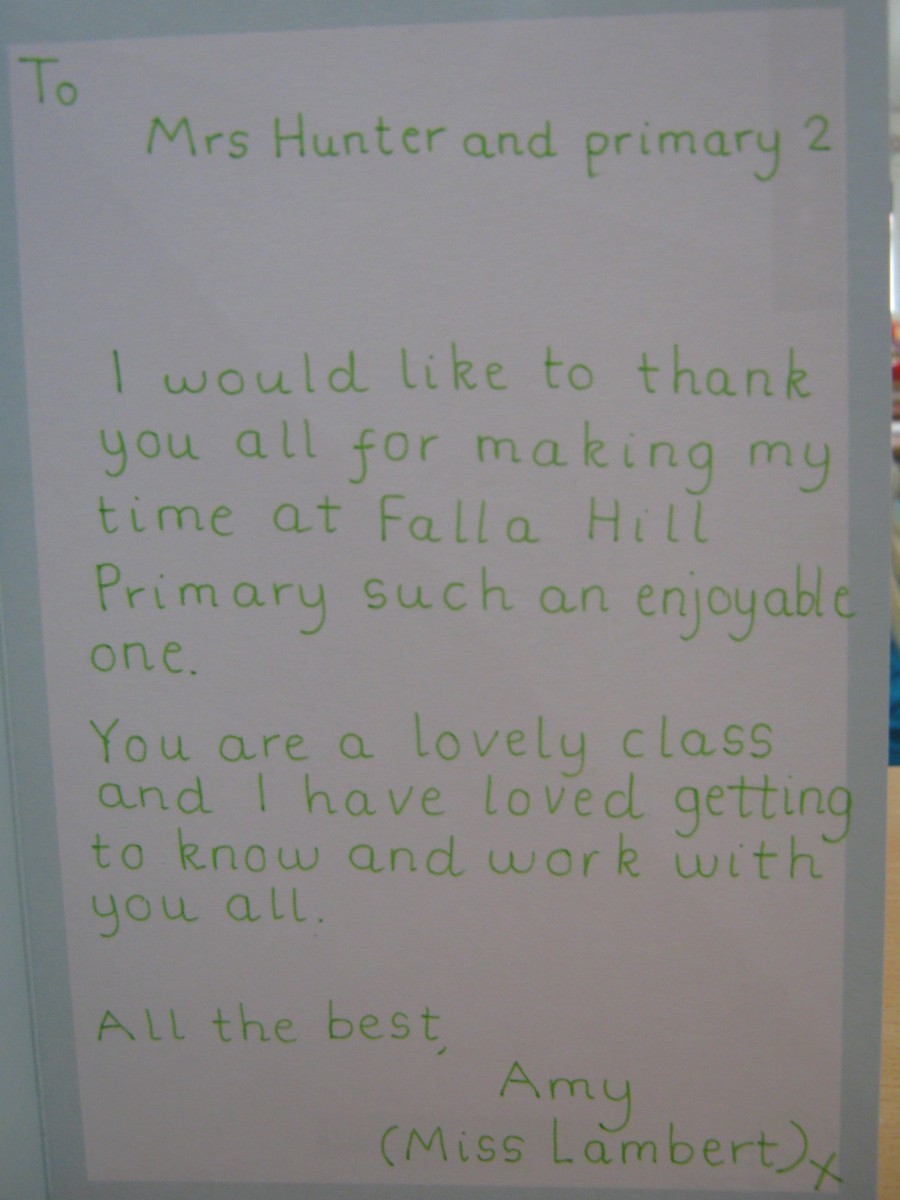 To
Mrs Hunter and primary 2
I would like to thank
you all for making my
time at Falla Hill
Primary such an enjoyable
one.
You are a lovely class
and I have loved getting
to know and work with
you all.
All the best,
Amy
(Miss Lambert)x